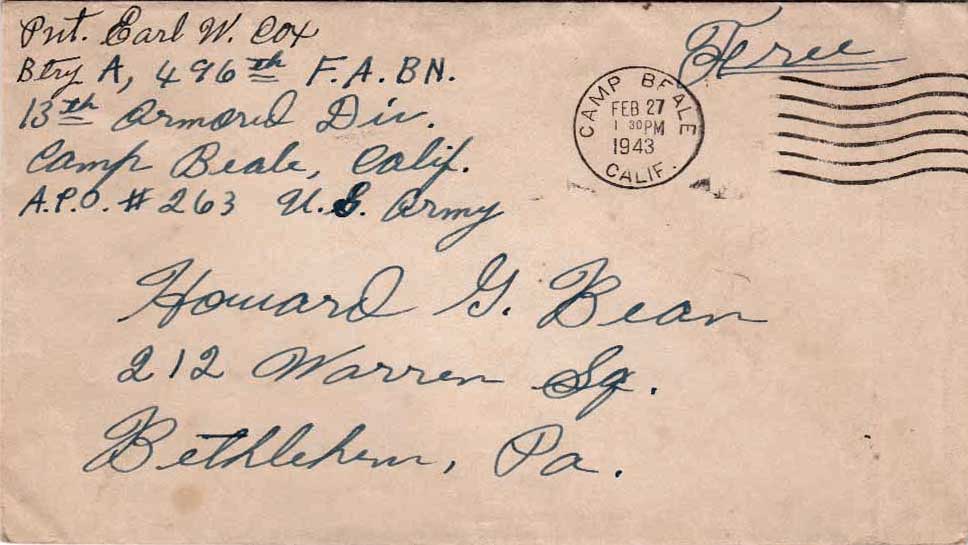 Pvt. Earl W. Cox
Btry A, 496th F.A. BN.
13th Armored Div.
Camp Beale, Calif.
A.P.O. # 263 U.S. Army
Free
CAMP BEALE
FEB 27
1 30 PM
1943
CALIF.
Howard G. Bean
212 Warren Sq.
Bethlehem, Pa.